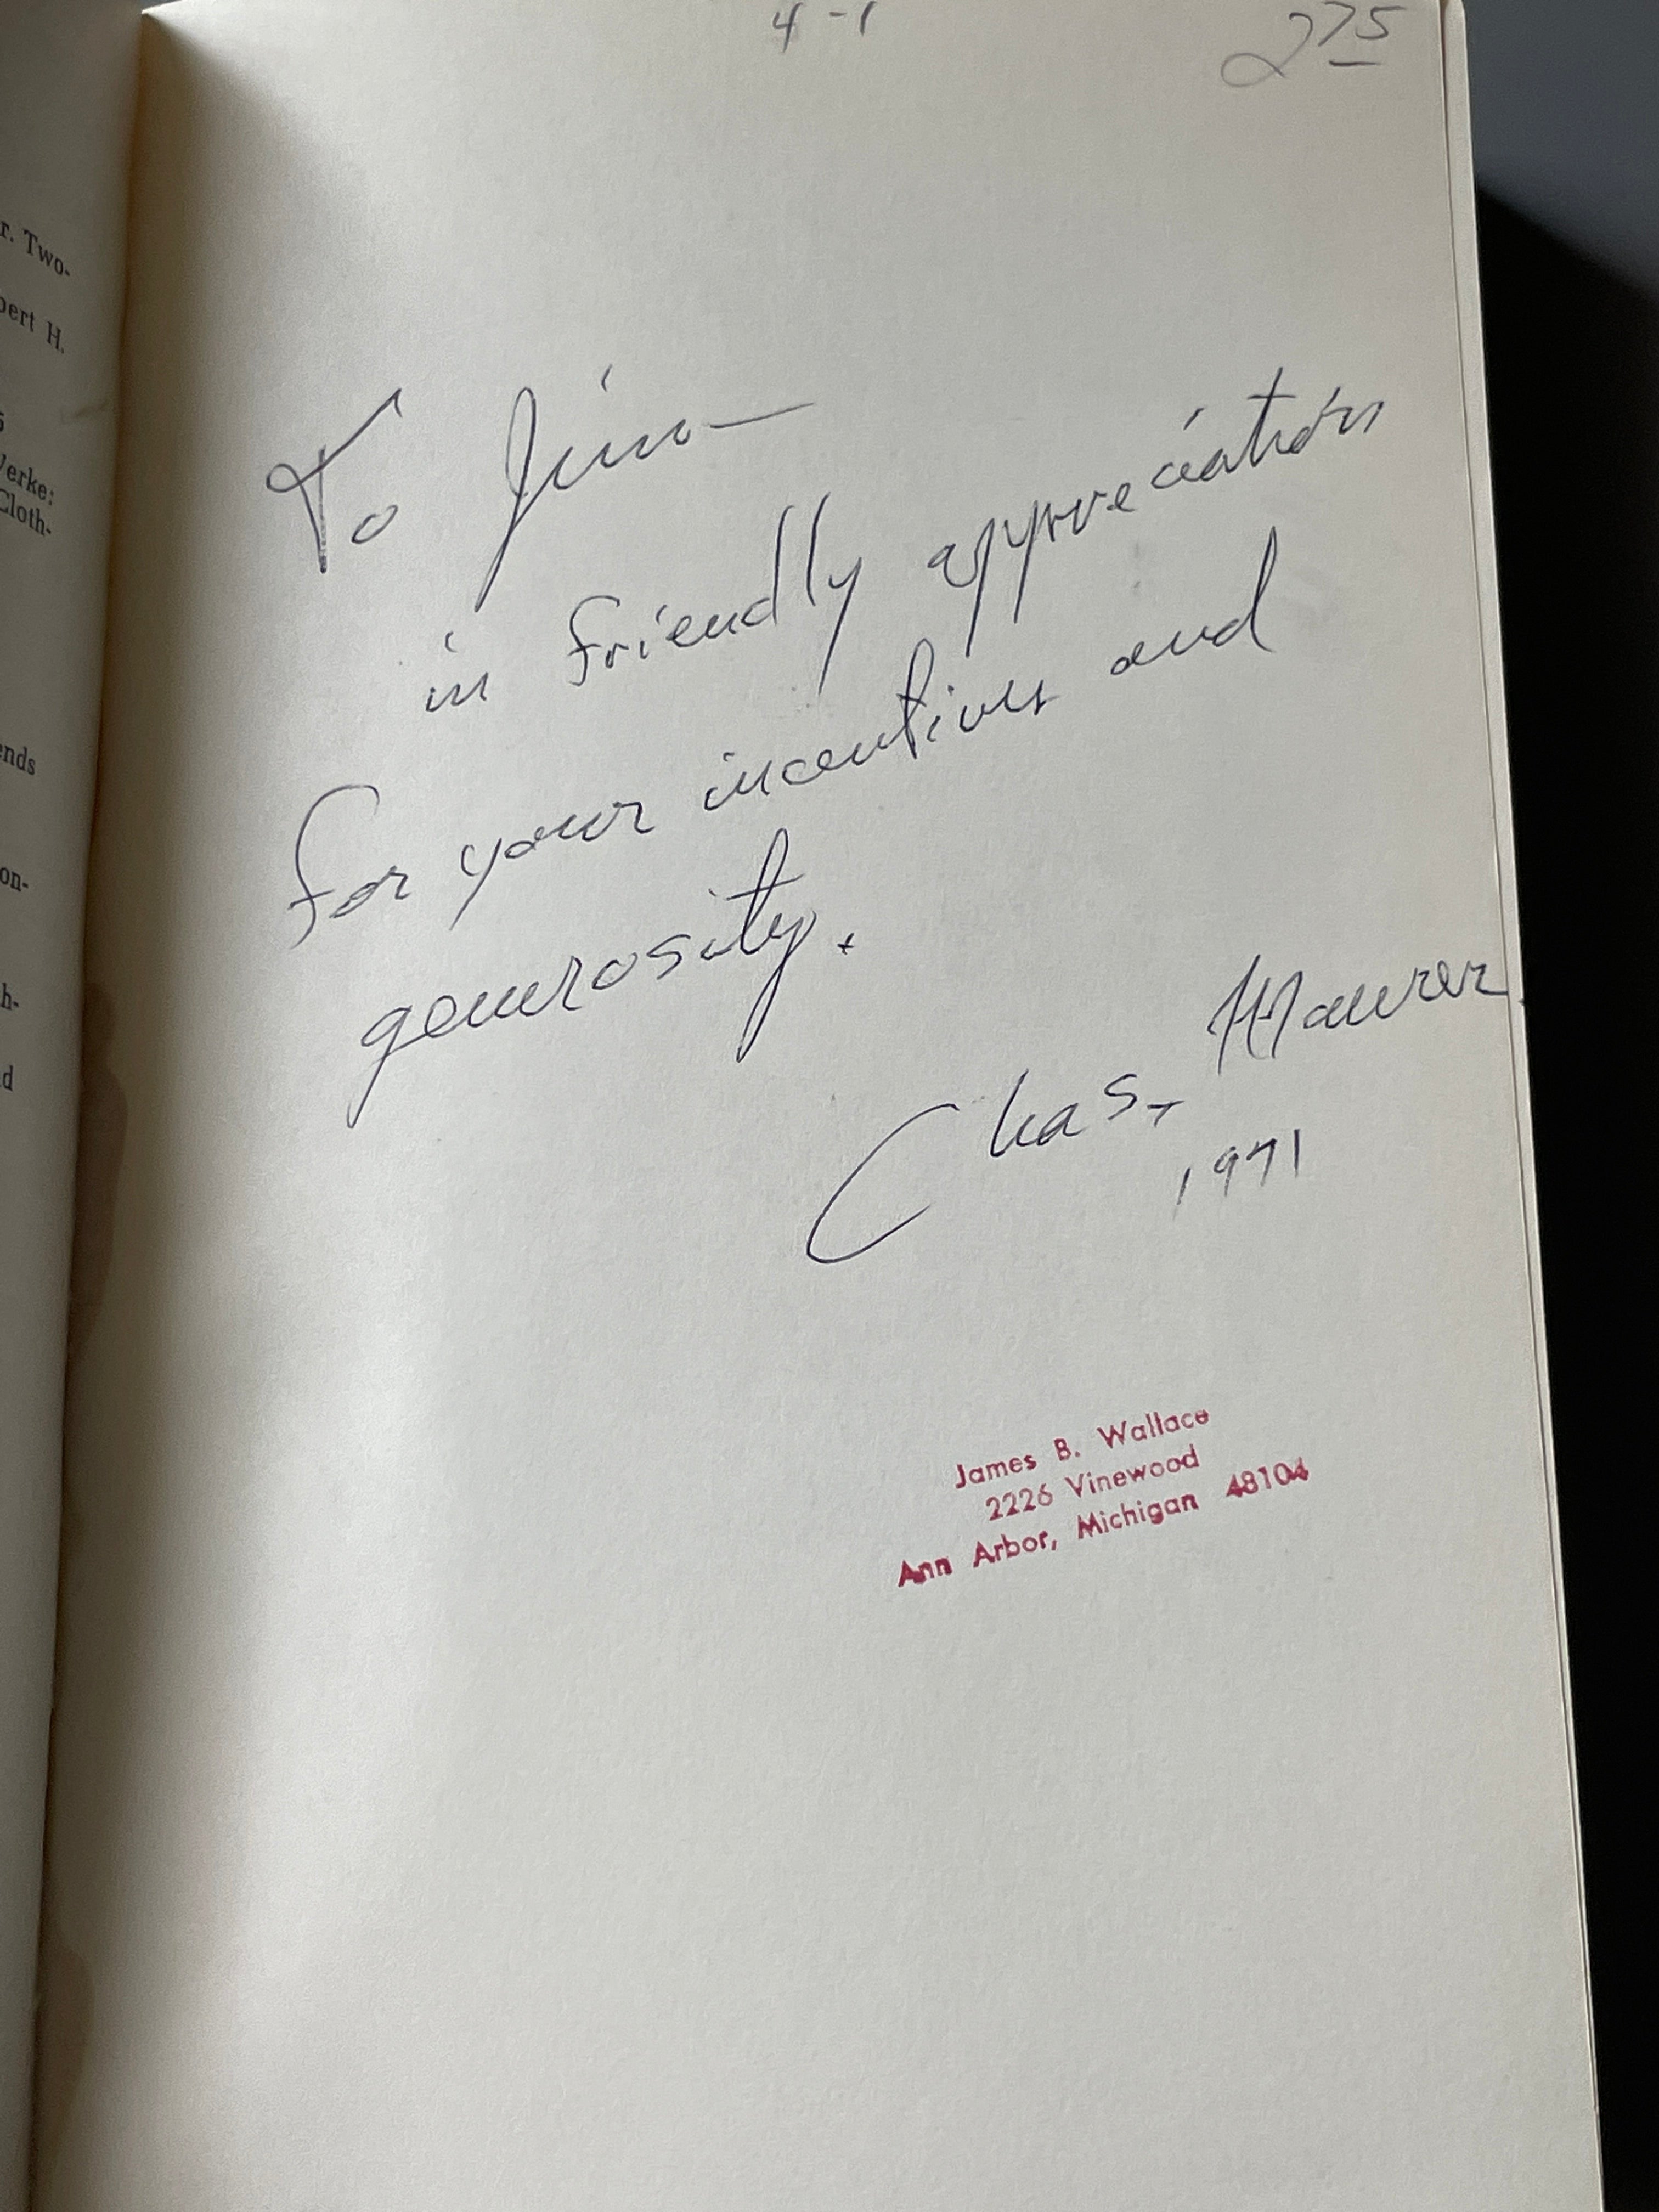 4-1
2 75
r. Two-
bert H.
Verke:
Cloth-
ends
on-
h-
d
To Jim—
in friendly appreciation
for your incentives and
generosity.
Chas. Maurer
1971
James B. Wallace
2226 Vinewood
Ann Arbor, Michigan 48104